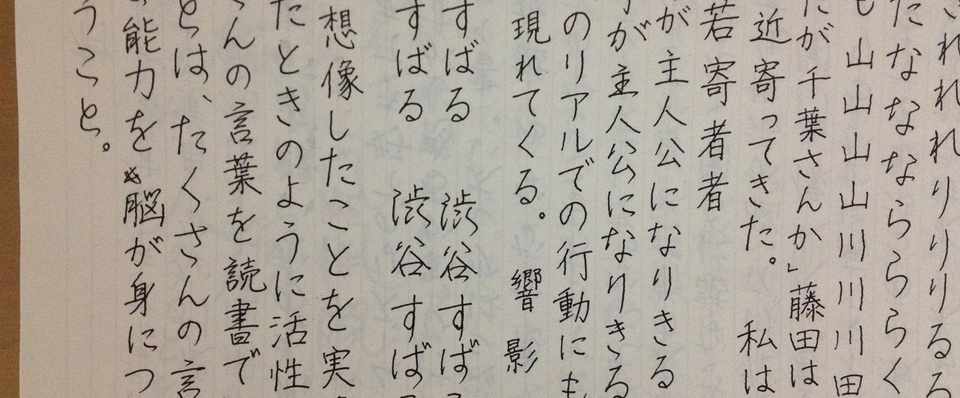 されれれりりりるる
たなななららららく
も山山山山川川川田
だが千葉さんか」藤田は
近寄ってきた。 私は
若寄者者
が主人公になりきる
が主人公になりきる
のリアルでの行動にも
現れてくる。 響影
すばる 渋谷すば
すばる 渋谷すば
想像したことを実
たときのように活性
さんの言葉を読書で
とは、たくさんの言
能力を脳が身につ
うこと。